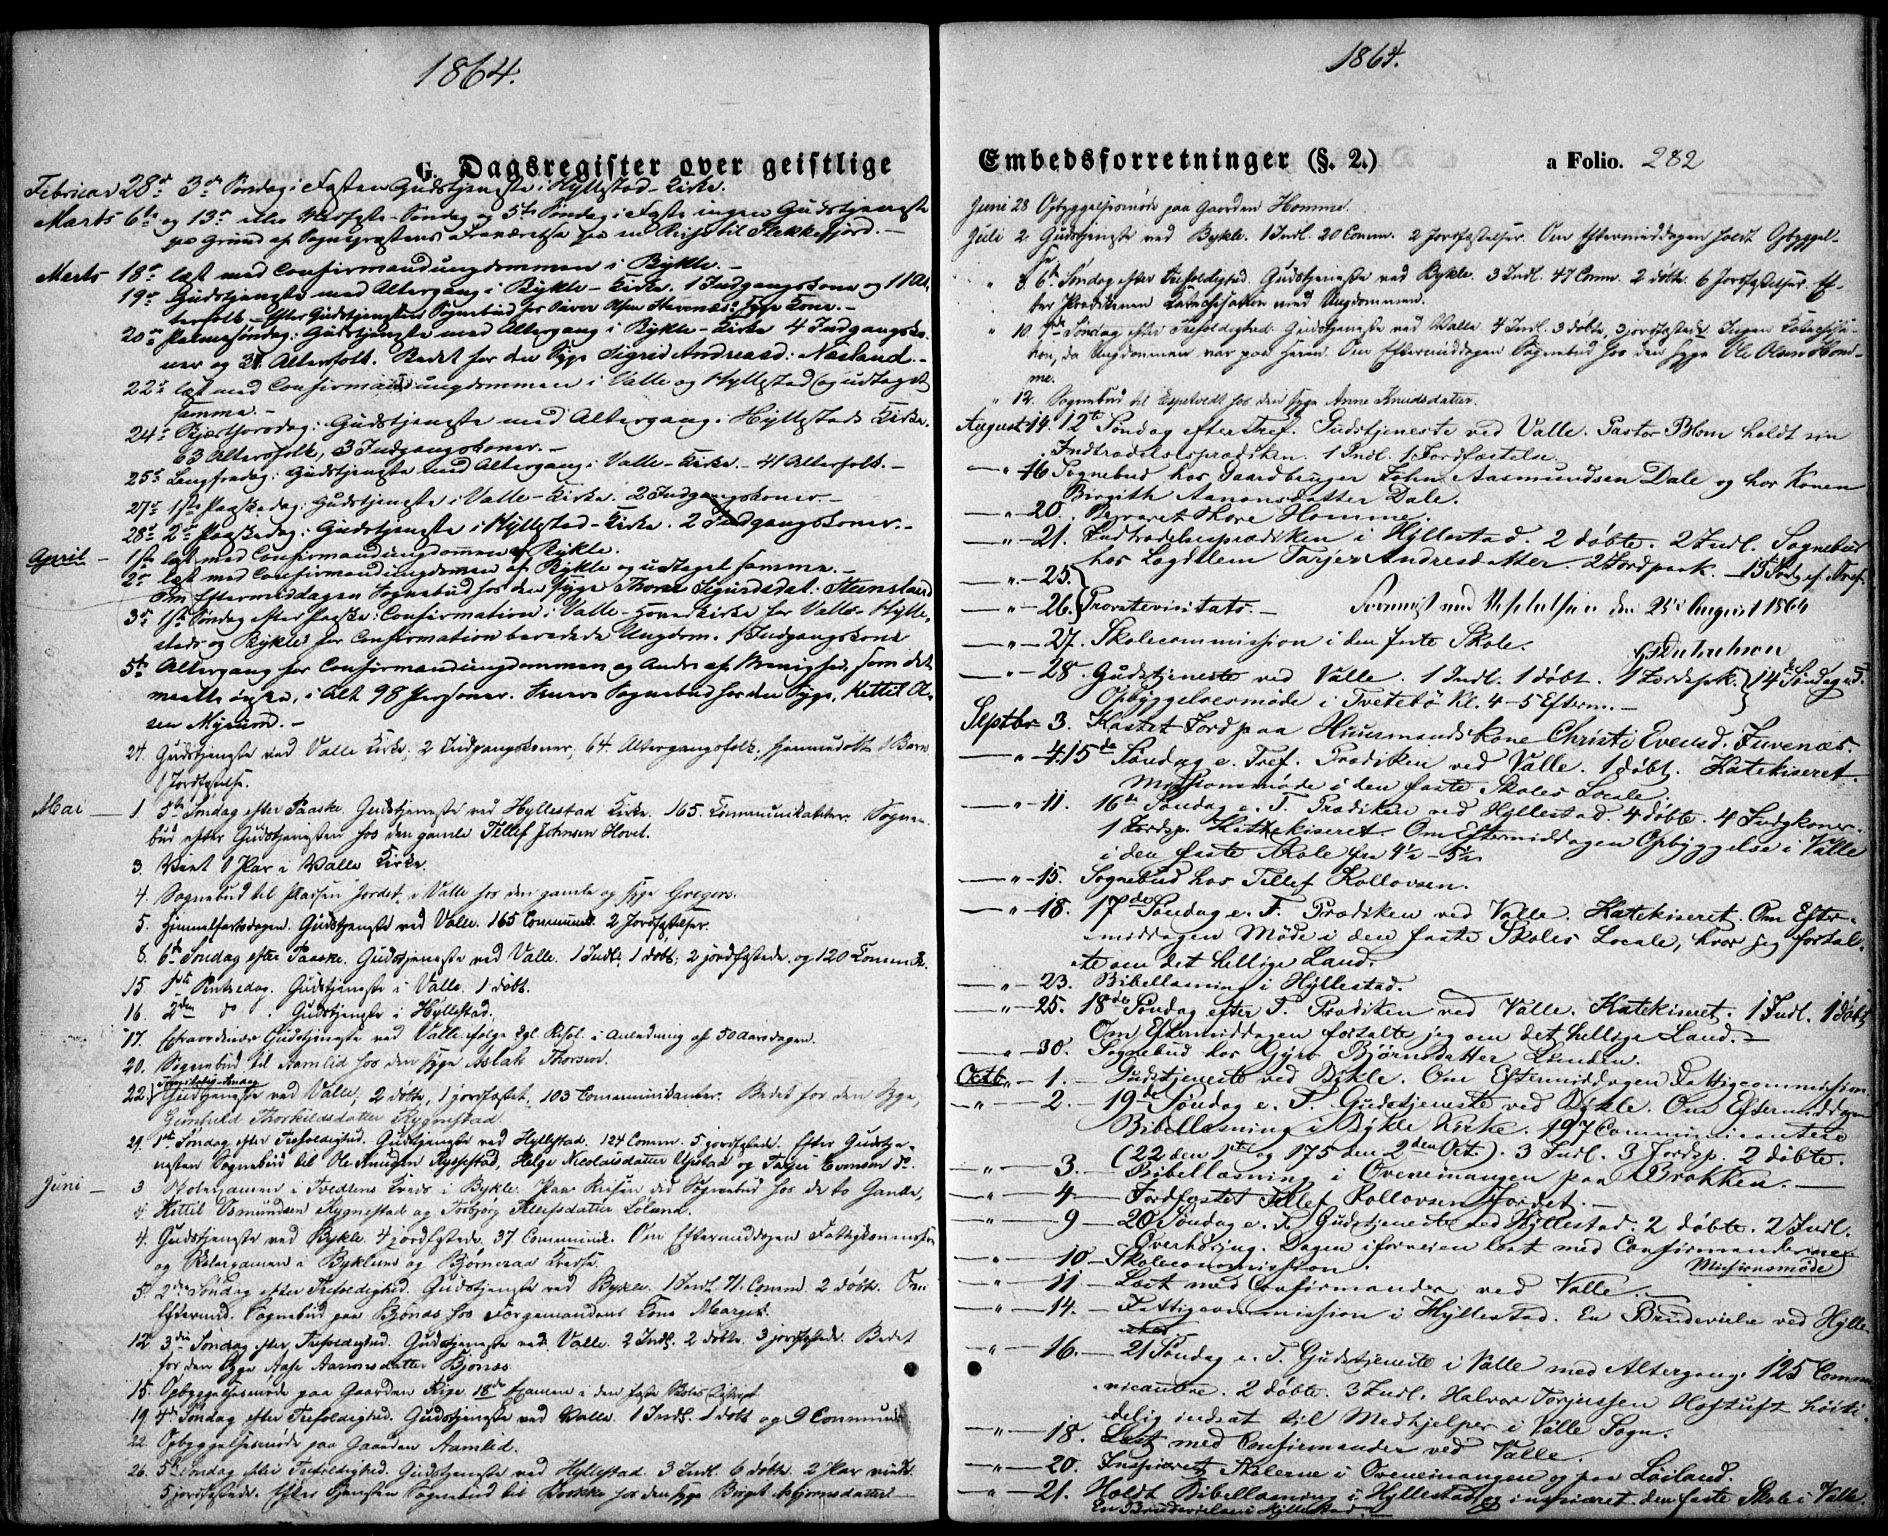 1864.
G. Dagsregister over geistlige
Februar 28de 3de Søndag i Fasten Gudstjeneste i Hyllestad-Kirke.
Marts 6te og 13de Søndag og 5te Søndag i Faste ingen Gudstjeneste
paa Grund af Sognepræstens Fraværelse paa en Reise til Flekkefjord. -
Marts 18de læst med Confirmandungdommen i Bykle. -
19de Gudstjeneste med Altergang i Bykle-Kirke. 1 Indgangskone og 11 Al-
terfolk - Efter Gudstjenesten Sognebud hos Olsen syge Kone. -
20de Palmesøndag: Gudstjeneste med Altergang i Bykle-Kirke 4 Indgangsko-
ner og Altersfolk. Bedet for den Syge Sigrid Andreasd: Næsland. -
22de læst med Confirmandungdommen i Valle og Hyllestad (og udtaget
samme. -
24de Skjærthorsdag: Gudstjeneste med Altergang i Hyllestads Kirke.
63 Altersfolk, 3 Indgangskoner. -
25de Langfredag: Gudstjeneste med Altergang i Valle-Kirke. - 41 Alterfolk. -
27de 1ste Paaskedag: Gudstjeneste i Valle-Kirke. 2 Indgangskoner. -
28de 2den Paaskedag: Gudstjeneste i Hyllestad-Kirke. 2 Indgangskoner. -
April - 1ste læst med Confirmandungdommen af Bykle.
2den læst med Confirmandungdommen af Bykle og udtaget samme. -
Om Eftermiddagen Sognebud hos den syge Thore Sigurdsdat: Steensland
3de 1ste Søndag efter Paaske: Confirmation i Valle-Hovedkirke for Valle-Hylle-
stads og Bykles for Confirmation beredede Ungdom. 1 Indgangskone
5te Altergang for Confirmandungdommen og Andre af Menighed, som det
maatte ønske, i Alt 98 Personer. Sognebud hos den Syge, Kettil Ol-
sen Myrum. -
24. Gudstjeneste ved Valle Kirke, 2 Indgangskoner, 64 Altergangsfolk, 1 Barn
1 Jordfæstelse.
Mai - 1. 5te Søndag efter Paaske. Gudstjeneste ved Hyllestad Kirke. 165 Communikanter. Sogne-
bud efter Gudstjenesten hos den gamle Tellef Johnsen Hovet.
3. Viet 1 Par i Valle Kirke.
4. Sognebud til Pladsen Jordet i Valle hos den gamle og syge Gregers.
5. Himmelfartsdagen. Gudstjeneste ved Valle. 165 Communik. 2 Jordfæstelser.
8. 6te Søndag efter Paaske. Gudstjeneste ved Valle. 1 Indl. 1 døbt; 2 jordfæstede og 120 Commik.
15 1ste Pintsedag. Gudstjeneste i Valle. 1 døbt.
16. 2den do . Gudstjeneste i Hyllestad.
17. Extraordinær Gudstjeneste ved Valle ifølge Kgl. Resol. i Anledning af 50 aarsdagen.
20. Sognebud til Aamlid hos den syge Aslak Thorsen.
22. Trinitatis-Søndag Gudstjeneste ved Valle, 2 døbte, 1 jordfæstet, 103 Communikanter. Bedet for den syge,
Gunhild Thorkildsdatter Rygnestad.
29. 1ste Søndag efter Trefoldighed. Gudstjeneste ved Hyllestad. 124 Comm. 5 jordfæstede. Efter Gudstje-
nesten Sognebud til Ole Knudsen Rysstad, Helge Nicolaisdatter Upstad og Tarjei Evensen do.
Juni - 3 Skoleexamen i Tvedtens Kreds i Bykle. Paa Reisen did Sognebud hos de to Gamle,
4. Kittil Osmundsen Rygnestad og Torbjørg Leifsdatter Løland.
4. Gudstjeneste ved Bykle. 4 jordfæstede. 37 Communik. Om Eftermiddagen Fattigkommission
og Skoleexamen i Byklum og Bjørneraa Kredse.
5. 2den Søndag efter Trefoldighed. Gudstjeneste ved Bykle. 1 Indl. 71 Comm. 2 døbte. Om
Eftermid. Sognebud paa Bjonas hos Forgemandens Kone Marget.
12. 3die Søndag efter Trefoldighed. Gudstjeneste ved Valle. 2 Indl. 2 døbte. 3 jordfæstede. Bedet
for den syge Aase Aanonsdatter Bjonas.
15. Opbyggelsesmøde paa Gaarden Rige. 18de Examen i den faste Skoles District.
19 4de Søndag efter Trefoldighed. Gudstjeneste ved Valle. 1 Indl. 1 døbt og 9 Communik.
22. Opbyggelsesmøde paa Gaarden Aamlid.
26. 5te Søndag efter Trefoldighed. Gudstjeneste ved Hyllestad. 3 Indl. 6 døbte. 2 Par viede.
5 jordfæstede. Efter Tjenesten Sognebud til Brokke hos den syge Birgit Bjørnsdatter
1864.
Embedsforretninger (§. 2.)
a Folio. 282
Juni 28 Opbyggelsesmøde paa Gaarden Homme.
Juli 2 Gudstjeneste ved Bykle. 1 Indl. 20 Comm. 2 Jordfæstelser. Om Eftermiddagen holdt Opbyggel-
se.
" 3. 6te Søndag efter Trefoldighed. Gudstjeneste ved Bykle. 3 Indl. 47 Comm. 2 døbte. 6 Jordfæstelser. Ef-
ter Prædikenen Katechisation med Ungdommen.
" 10. 7de Søndag efter Trefoldighed. Gudstjeneste ved Valle. 4 Indl. 3 døbte, 3 jordfæstede. Ingen Katechisa-
tion, da Ungdommen var paa Heien. Om Eftermiddagen Sognebud hos den syge Ole Olsen Hom-
me.
" 12. Sognebud til Espetvedt hos den syge Anne Knudsdatter.
August 14. 12te Søndag efter Tref. Gudstjeneste ved Valle. Pastor Blom holdt sin
Indtrædelsesprædiken. 1 Indl. 1 Jordfæstelse.
- " 16 Sognebud hos Gaardbruger John Aasmundsen Dale og hos Konen
Birgith Aanonsdatter Dale.
- " - 20. Begravet Thore Homme.
- " - 21. Indtrædelsesprædiken i Hyllestad. 2 døbte. 2 Indl. Sognebud
hos Lægdslem Tarjer Andresdatter. 2 Jordpaak. - 13 Sødg af Tref.
- " - 25.
- " - 26. Provstevisitats. - Seet med Visitatsen den 25de August 1864
- " - 27. Skolecommission i den faste Skole.
- " - 28. Gudstjeneste ved Valle. 1 Indl. 1 døbt. 1 Jordspk. 14de Søndag
Opbyggelsesmøde i Tvetebø kl. 4-5 Efterm. -
Septbr 3. Kastet Jord paa Huusmandskone Christi Evensd. Furenæs.
- " 4. 15de Søndag e. Tref. Prædiken ved Valle. 1 døbt. Katekiseret.
Missionsmøde i den faste Skoles Locale.
- " - 11. 16de Søndag e. T. Prædiken ved Hyllestad. 4 døbte. 4 Indgkoner.
1 Jordsp. Katekiseret. Om Eftermiddagen Opbyggelse i Valle
i den faste Skole fra 4½ - 5½
- " - 15. Sognebud hos Tellef Rollovsen.
- " - 18. 17de Søndag e. T. Prædiken ved Valle. Katekiseret. Om Efter-
middagen Møde i den faste Skoles Locale, hvor jeg fortal-
te om det hellige Land.
- " - 23. Bibellæsning i Hyllestad.
- " - 25. 18de Søndag efter T. Prædiken ved Valle. Katekiseret. 1 Indl. 1 døbt
Om Eftermiddagen fortalte jeg om det hellige Land. -
- " - 30. Sognebud hos Gyro Bjørnsdatter Lunden.
Octb. - 1. - Gudstjeneste ved Bykle. Om Eftermiddagen Fattigcommission.
- " - 2. - 19de Søndag e. T. Gudstjeneste ved Bykle. Om Eftermiddagen
Bibellæsning i Bykle Kirke. 197 Communicantere
(22 den 1ste og 175 den 2den Oct.). 3 Indl. 3 Jordsp. 2 døbte.
- " - 3. - Bibellæsning i Øveneimangen paa Brokken. -
- " - 4 - Jordfæstet Tellef Rollovsen Jordet. -
- " - 9 - 20 Søndag e. T. Gudstjeneste ved Hyllestad. 2 døbte. 2 Indl.
Overhøring. Dagen iforveien læst med Confirmanderne
- " - 10. - Skolecommission. Missionsmøde
- " - 11 - Læst med Confirmander ved Valle.
- " - 14. - Fattigcommission i Hyllestad. En Brudevielse ved Hylle-
stad.
- " - 16. - 21 Søndag e. T. Gudstjeneste i Valle med Altergang. 125 Commu-
nicantere. 2 døbte. 3 Indl. Halvor Torjussen Hoftuft høiti-
delig indsat til Medhjelper i Valle Sogn.
- " - 18. Læst med Confirmander ved Valle.
- " - 20. Inspiceret Skolerne i Øveneimangen og paa Løiland.
- " - 21. Holdt Bibellæsning i Hyllestad og inspiceret den faste Skole i Valle.
En Brudevielse i Hyllestad.